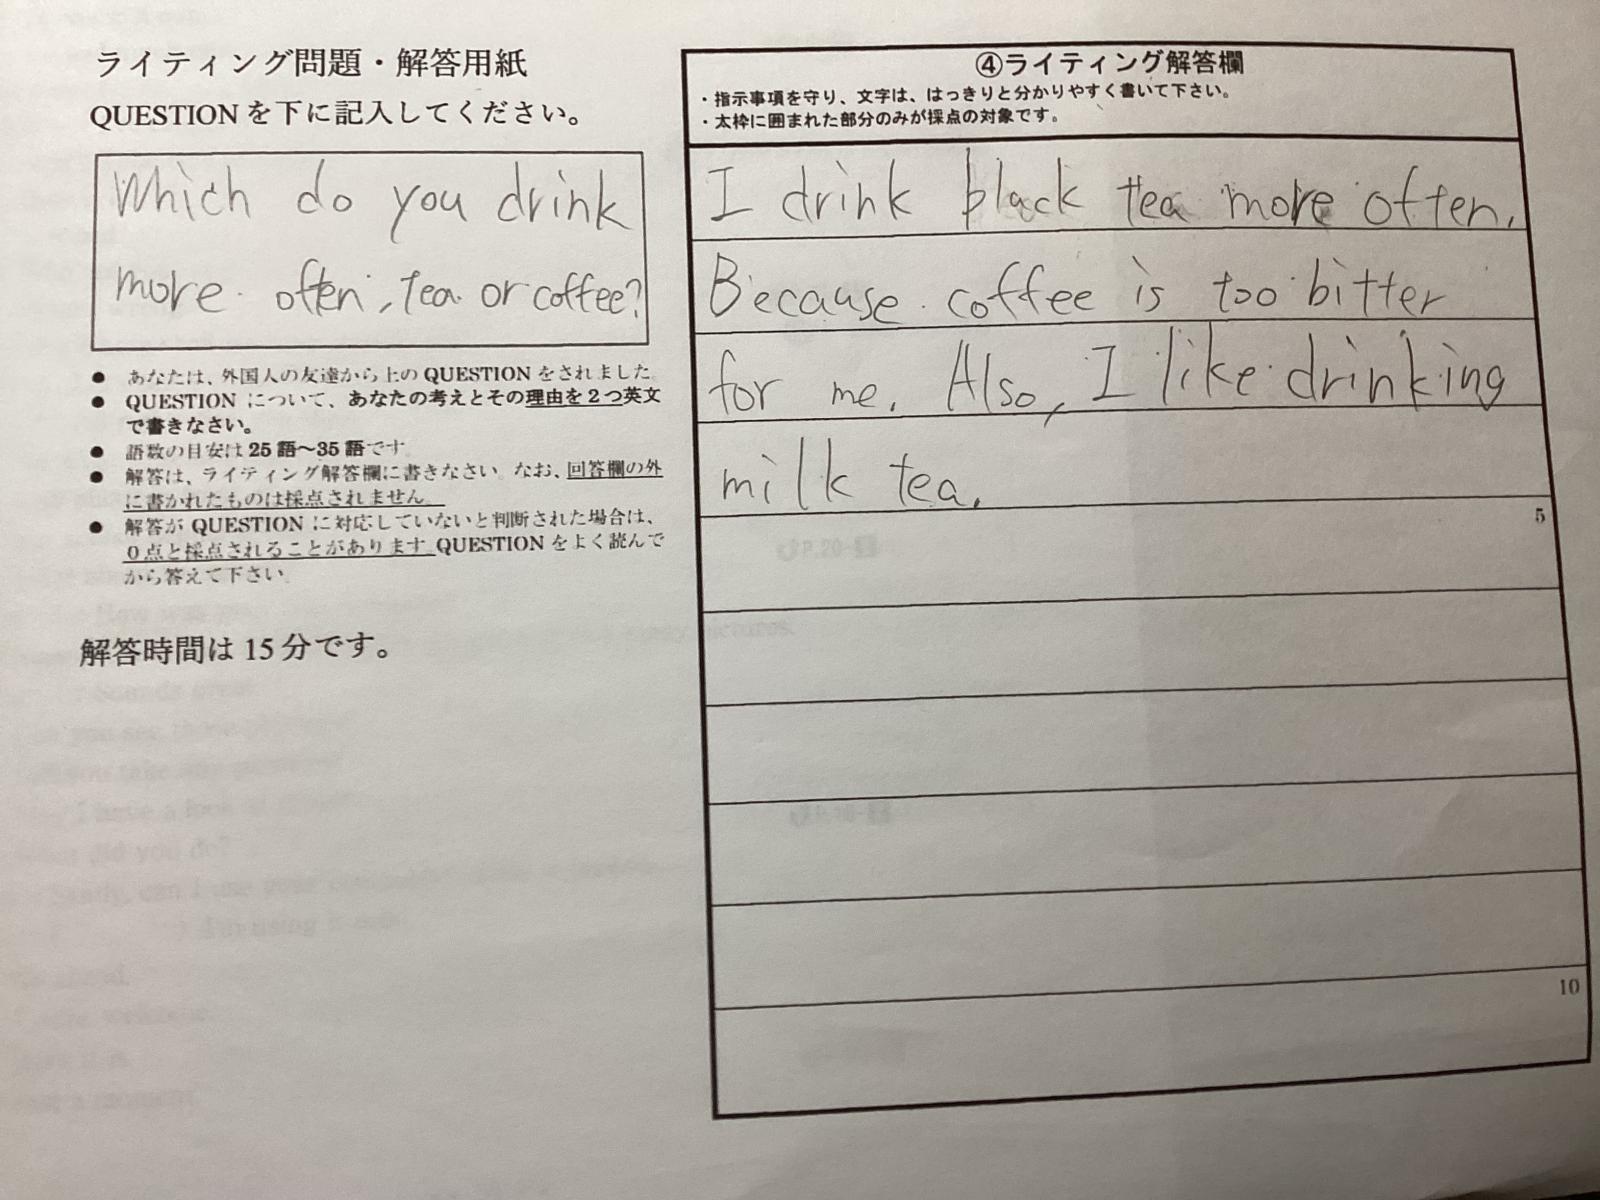 ライティング問題・解答用紙
QUESTIONを下に記入してください。
Which do you drink
more often, tea or coffee?
● あなたは、外国人の友達から上のQUESTIONをされました。
● QUESTIONについて、あなたの考えとその理由を2つ英文
で書きなさい。
● 語数の目安は25語～35語です。
● 解答は、ライティング解答欄に書きなさい。なお、回答欄の外
に書かれたものは採点されません。
● 解答がQUESTIONに対応していないと判断された場合は、
0点と採点されることがあります。QUESTIONをよく読んで
から答えて下さい。
解答時間は15分です。
④ライティング解答欄
・指示事項を守り、文字は、はっきりと分かりやすく書いて下さい。
・太枠に囲まれた部分のみが採点の対象です。
I drink black tea more often.
Because coffee is too bitter
for me. Also, I like drinking
milk tea.
5
10